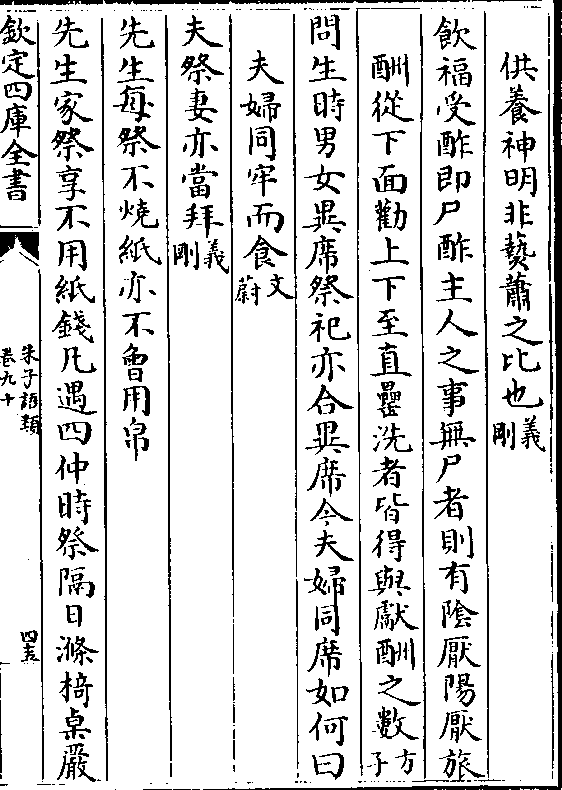 供養神明非爇蕭之比也義剛
飲福受酢即尸酢主人之事無尸者則有陰厭陽厭旅
酬從下面勸上下至直罍洗者皆得與獻酬之數方子
問生時男女異席祭祀亦合異席今夫婦同席如何曰
夫婦同牢而食文蔚
夫祭妻亦當拜義剛
先生每祭不燒紙亦不曾用帛
先生家祭享不用紙錢凡遇四仲時祭隔日滌椅桌嚴
欽定四庫全書
朱子語類
卷九十
四十五